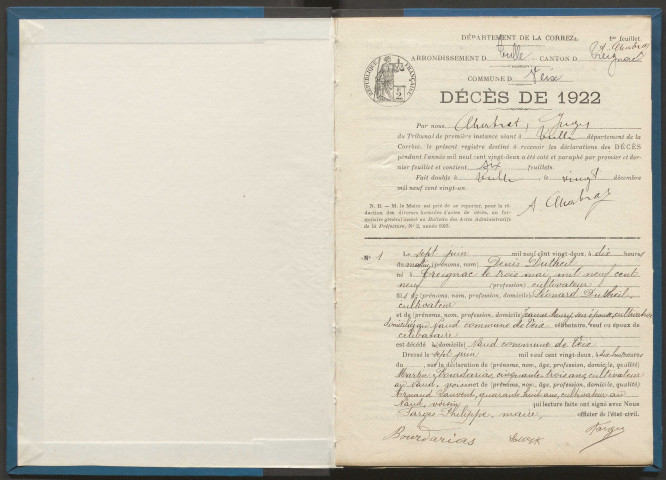 DÉPARTEMENT DE LA CORRÈZE. 1er feuillet.
A. Charbrat
ARRONDISSEMENT D Tulle CANTON D Treignac
COMMUNE D Veix
RÉPUBLIQUE FRANÇAISE
DÉCÈS DE 1922
Par nous, Juge
du Tribunal de première instance séant à Tulle département de la
Corrèze, le présent registre destiné à recevoir les déclarations des DÉCÈS
pendant l'année mil neuf cent vingt-deux a été coté et paraphé par premier et der-
nier feuillet et contient six feuillets.
Fait double à Tulle, le vingt décembre
mil neuf cent vingt-un.
N. B. — M. le Maire est prié de se reporter, pour la ré-
daction des diverses formules d'actes de décès, au for-
mulaire général inséré au Bulletin des Actes Administratifs
de la Préfecture, N° 2, année
N° 1 Le sept juin mil neuf cent vingt-deux, à dix heures
du matin (prénoms, nom) Denis Dutheil
né à Treignac le trois mai mil neuf cent
neuf (profession) cultivateur
fils de (prénoms, nom, profession, domicile) Léonard Dutheil,
cultivateur
et de (prénoms, nom, profession, domicile) Jeanne son épouse, cultivatrice
domiciliés commune de Veix célibataire, veuf ou époux de
célibataire
est décédé (domicile) Naud commune de Veix
Dressé le sept juin mil neuf cent vingt-deux, à dix huit heures
du, sur la déclaration de (prénoms, nom, âge, profession, domicile, qualité)
Martin Bourdarias, cinquante trois ans, cultivateur
au Naud, voisin et de (prénoms, nom, âge, profession, domicile, qualité)
Laurent, quarante huit ans, cultivateur au
Naud, voisin qui lecture faite ont signé avec Nous
Farges Philippe, maire, officier de l'état-civil.
Bourdarias Farges